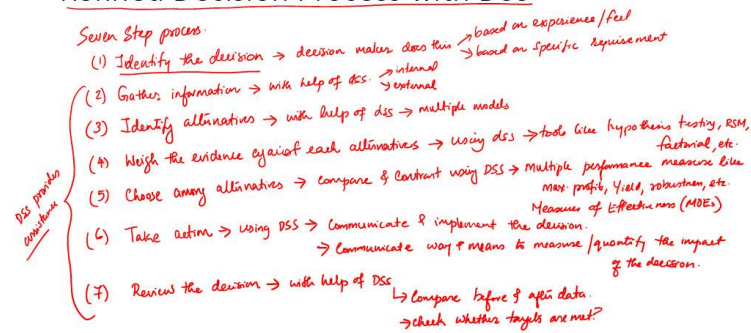 Refined Decision Process with DSS
Seven Step process.
(1) Identify the decision → decision maker does this → based on experience/feel
→ based on specific requirement
(2) Gather information → with help of dss. → internal
→ external
(3) Identify alternatives → with help of dss → multiple models
(4) Weigh the evidence against each alternatives → using dss → tools like hypothesis testing, RSM,
factorial, etc.
(5) Choose among alternatives → compare & contrast using DSS → Multiple performance measure like
max. profit, Yield, robustness, etc.
Measures of Effectiveness (MOEs)
(6) Take action → using DSS → Communicate & implement the decision.
→ Communicate way & means to measure/quantify the impact
of the decision.
(7) Review the decision → with help of DSS
↳ Compare before & after data.
→ check whether targets are met?
DSS provides
assistance